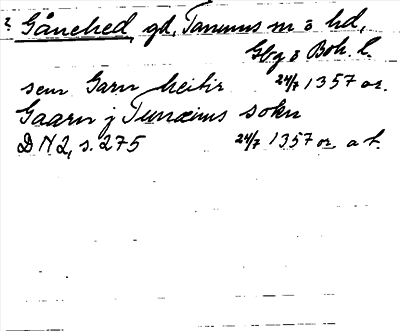 ? Gånehed, gd, Tanums sn o hd,
Gbg o Boh. l.
sem Garn heitir 24/7 1357 or.
Gaarn j Tunæims sokn
DN 2, s. 275 24/7 1357 or. a t.